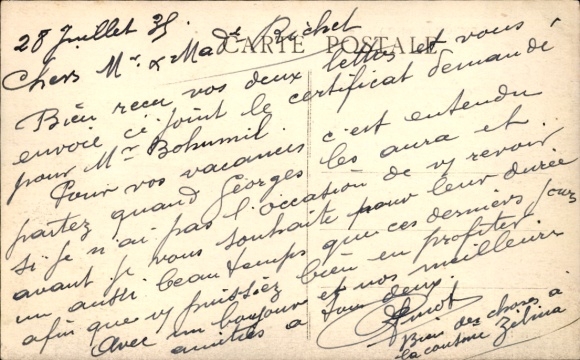 28 Juillet 35.
CARTE POSTALE
Chers Mr. & Made Richet
Bien reçu vos deux lettres et vous
envoie ci joint le certificat demandé
pour Mr Bohumil.
Pour vos vacances c'est entendu
partez quand Georges les aura et
si je n'ai pas l'occation de vs revoir
avant je vous souhaite pour leur durée
un aussi beau temps que ces derniers jours
afin que vs puissiez bien en profiter
Avec un bonjour et nos meilleures
amitiés à tous deux.
Bien des choses à
la cousine Zelina